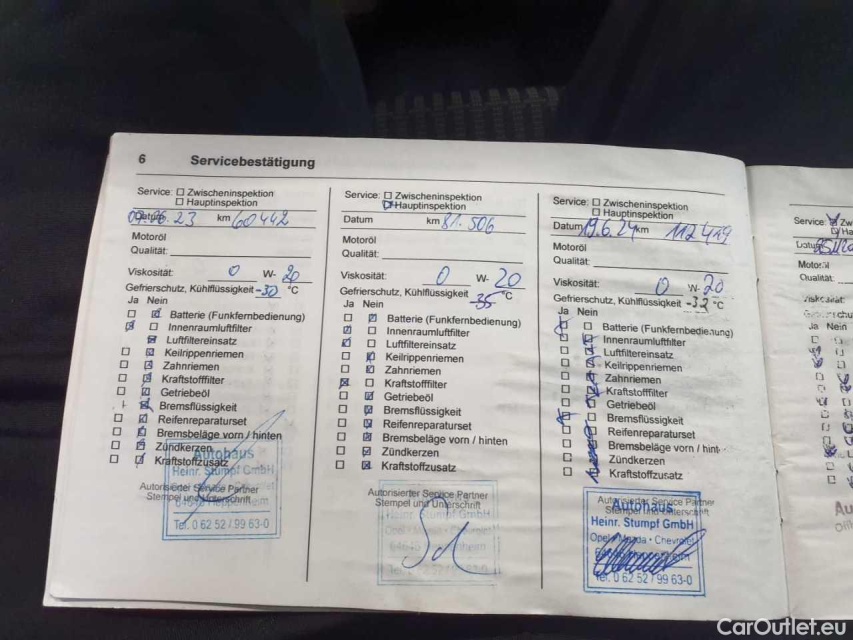 6 Servicebestätigung
Service: Zwischeninspektion
Hauptinspektion
Datum 23 km 60442
Motoröl
Qualität:
Viskosität: 0 W- 20
Gefrierschutz, Kühlflüssigkeit -30 °C
Ja Nein
Batterie (Funkfernbedienung)
Innenraumluftfilter
Luftfiltereinsatz
Keilrippenriemen
Zahnriemen
Kraftstofffilter
Getriebeöl
Bremsflüssigkeit
Reifenreparaturset
Bremsbeläge vorn / hinten
Zündkerzen
Kraftstoffzusatz
Autohaus
Heinr. Stumpf GmbH
Autorisierter Service Partner
Stempel und Unterschrift
Tel. 0 62 52 / 99 63-0
Service: Zwischeninspektion
Hauptinspektion
Datum km 81.506
Motoröl
Qualität:
Viskosität: 0 W- 20
Gefrierschutz, Kühlflüssigkeit -35 °C
Ja Nein
Batterie (Funkfernbedienung)
Innenraumluftfilter
Luftfiltereinsatz
Keilrippenriemen
Zahnriemen
Kraftstofffilter
Getriebeöl
Bremsflüssigkeit
Reifenreparaturset
Bremsbeläge vorn / hinten
Zündkerzen
Kraftstoffzusatz
Autorisierter Service Partner
Stempel und Unterschrift
Heinr. Stumpf GmbH
Service: Zwischeninspektion
Hauptinspektion
Datum 19.6.24 km 112419
Motoröl
Qualität:
Viskosität: 0 W- 20
Gefrierschutz, Kühlflüssigkeit -32 °C
Ja Nein
Batterie (Funkfernbedienung)
Innenraumluftfilter
Luftfiltereinsatz
Keilrippenriemen
Zahnriemen
Kraftstofffilter
Getriebeöl
Bremsflüssigkeit
Reifenreparaturset
Bremsbeläge vorn / hint
Zündkerzen
Kraftstoffzusatz
Autorisierter Service Partner
Stempel und Unterschrift
Autohaus
Heinr. Stumpf GmbH
Opel · Mazda · Chevrolet
Tel. 0 62 52 / 99 63-0
Service: Zw
Ha
Motoröl
Qualität:
Ja Nein
CarOutlet.eu